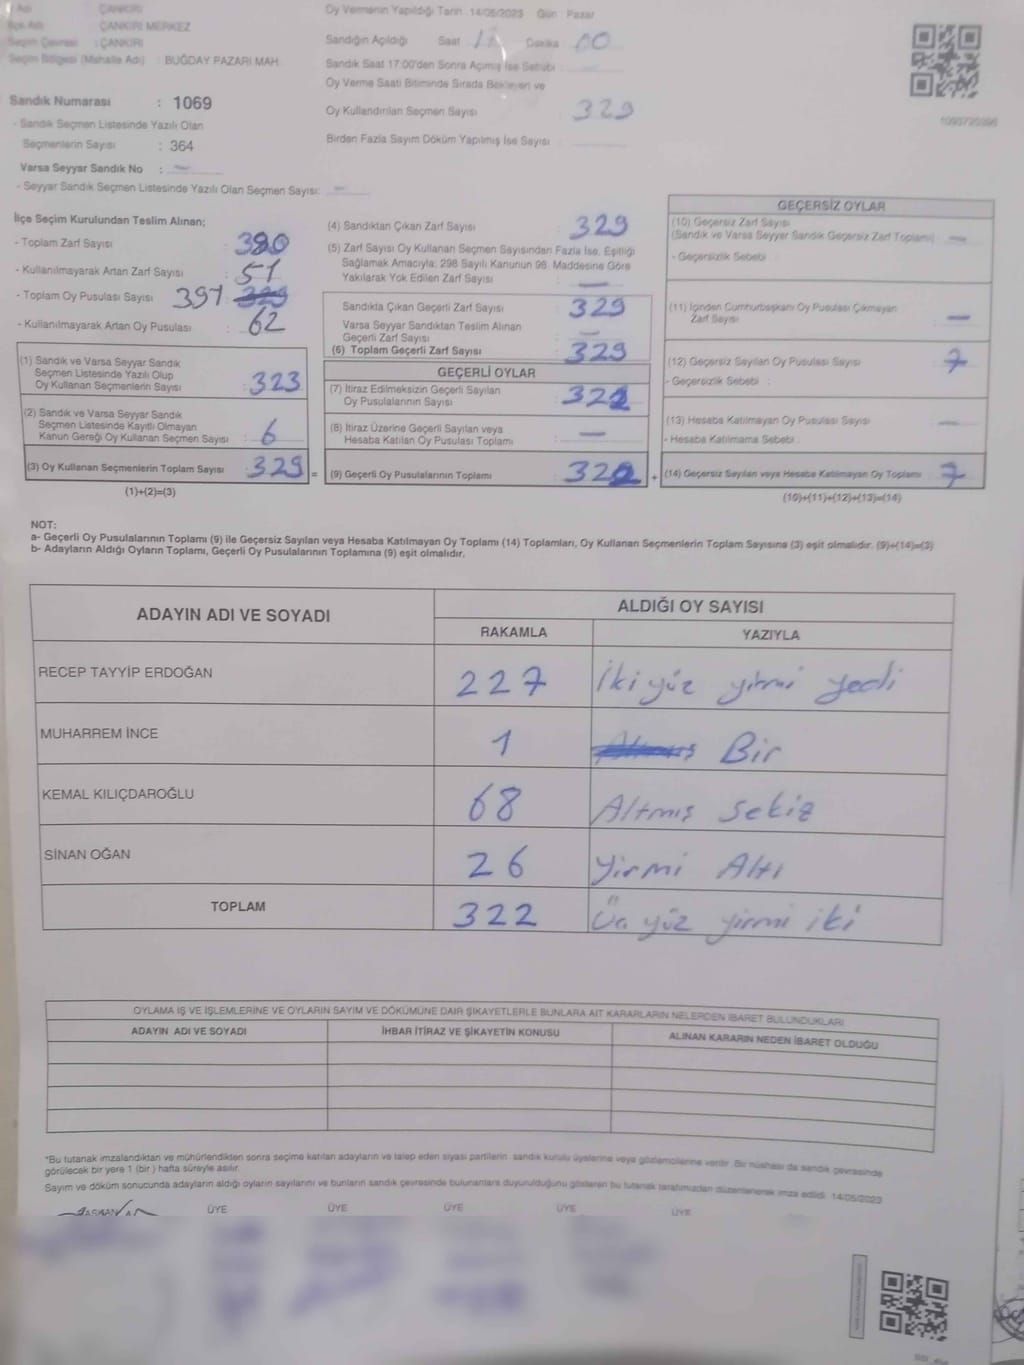 Adı ÇANKIRI
İlçe Adı ÇANKIRI MERKEZ
Seçim Çevresi : ÇANKIRI
Seçim Bölgesi (Mahalle Adı) : BUĞDAY PAZARI MAH.
Sandık Numarası : 1069
- Sandık Seçmen Listesinde Yazılı Olan
Seçmenlerin Sayısı : 364
Varsa Seyyar Sandık No : —
- Seyyar Sandık Seçmen Listesinde Yazılı Olan Seçmen Sayısı: —
Oy Vermenin Yapıldığı Tarih : 14/05/2023 Gün : Pazar
Sandığın Açıldığı Saat Dakika 00
Sandık Saat 17:00'den Sonra Açımış İse Sebebi :
Oy Verme Saati Bitiminde Sırada Bekleyen ve
Oy Kullandırılan Seçmen Sayısı 329
Birden Fazla Sayım Döküm Yapılmış İse Sayısı :
İlçe Seçim Kurulundan Teslim Alınan;
- Toplam Zarf Sayısı : 380
- Kullanılmayarak Artan Zarf Sayısı : 51
- Toplam Oy Pusulası Sayısı 391
- Kullanılmayarak Artan Oy Pusulası : 62
(1) Sandık ve Varsa Seyyar Sandık
Seçmen Listesinde Yazılı Olup
Oy Kullanan Seçmenlerin Sayısı : 323
(2) Sandık ve Varsa Seyyar Sandık
Seçmen Listesinde Kayıtlı Olmayan
Kanun Gereği Oy Kullanan Seçmen Sayısı : 6
(3) Oy Kullanan Seçmenlerin Toplam Sayısı : 329 =
(1)+(2)=(3)
(4) Sandıktan Çıkan Zarf Sayısı : 329
(5) Zarf Sayısı Oy Kullanan Seçmen Sayısından Fazla İse, Eşitliği
Sağlamak Amacıyla; 298 Sayılı Kanunun 98. Maddesine Göre
Yakılarak Yok Edilen Zarf Sayısı : —
Sandıkla Çıkan Geçerli Zarf Sayısı : 329
Varsa Seyyar Sandıktan Teslim Alınan
Geçerli Zarf Sayısı : —
(6) Toplam Geçerli Zarf Sayısı : 329
GEÇERLİ OYLAR
(7) İtiraz Edilmeksizin Geçerli Sayılan
Oy Pusulalarının Sayısı : 322
(8) İtiraz Üzerine Geçerli Sayılan veya
Hesaba Katılan Oy Pusulası Toplamı : —
(9) Geçerli Oy Pusulalarının Toplamı : 322 +
GEÇERSİZ OYLAR
(10) Geçersiz Zarf Sayısı
(Sandık ve Varsa Seyyar Sandık Geçersiz Zarf Toplamı) : —
- Geçersizlik Sebebi :
(11) İçinden Cumhurbaşkanı Oy Pusulası Çıkmayan
Zarf Sayısı : —
(12) Geçersiz Sayılan Oy Pusulası Sayısı : 7
- Geçersizlik Sebebi :
(13) Hesaba Katılmayan Oy Pusulası Sayısı : —
- Hesaba Katılmama Sebebi :
(14) Geçersiz Sayılan veya Hesaba Katılmayan Oy Toplamı : 7
(10)+(11)+(12)+(13)=(14)
NOT:
a- Geçerli Oy Pusulalarının Toplamı (9) ile Geçersiz Sayılan veya Hesaba Katılmayan Oy Toplamı (14) Toplamları, Oy Kullanan Seçmenlerin Toplam Sayısına (3) eşit olmalıdır. (9)+(14)=(3)
b- Adayların Aldığı Oyların Toplamı, Geçerli Oy Pusulalarının Toplamına (9) eşit olmalıdır.
ADAYIN ADI VE SOYADI ALDIĞI OY SAYISI
RAKAMLA YAZIYLA
RECEP TAYYİP ERDOĞAN 227 İki yüz yirmi yedi
MUHARREM İNCE 1 Bir
KEMAL KILIÇDAROĞLU 68 Altmış sekiz
SİNAN OĞAN 26 Yirmi Altı
TOPLAM 322 Üç yüz yirmi iki
OYLAMA İŞ VE İŞLEMLERİNE VE OYLARIN SAYIM VE DÖKÜMÜNE DAİR ŞİKAYETLERLE BUNLARA AİT KARARLARIN NELERDEN İBARET BULUNDUKLARI
ADAYIN ADI VE SOYADI İHBAR İTİRAZ VE ŞİKAYETİN KONUSU ALINAN KARARIN NEDEN İBARET OLDUĞU
*Bu tutanak imzalandıktan ve mühürlendikten sonra seçime katılan adayların ve talep eden siyasi partilerin sandık kurulu üyelerine veya gözlemcilerine verilir. Bir nüshası da sandık çevresinde
görülecek bir yere 1 (bir) hafta süreyle asılır.
Sayım ve döküm sonucunda adayların aldığı oyların sayılarını ve bunların sandık çevresinde bulunanlara duyurulduğunu gösteren bu tutanak tarafımızdan düzenlenerek imza edildi. 14/05/2023
BAŞKAN ÜYE ÜYE ÜYE ÜYE ÜYE